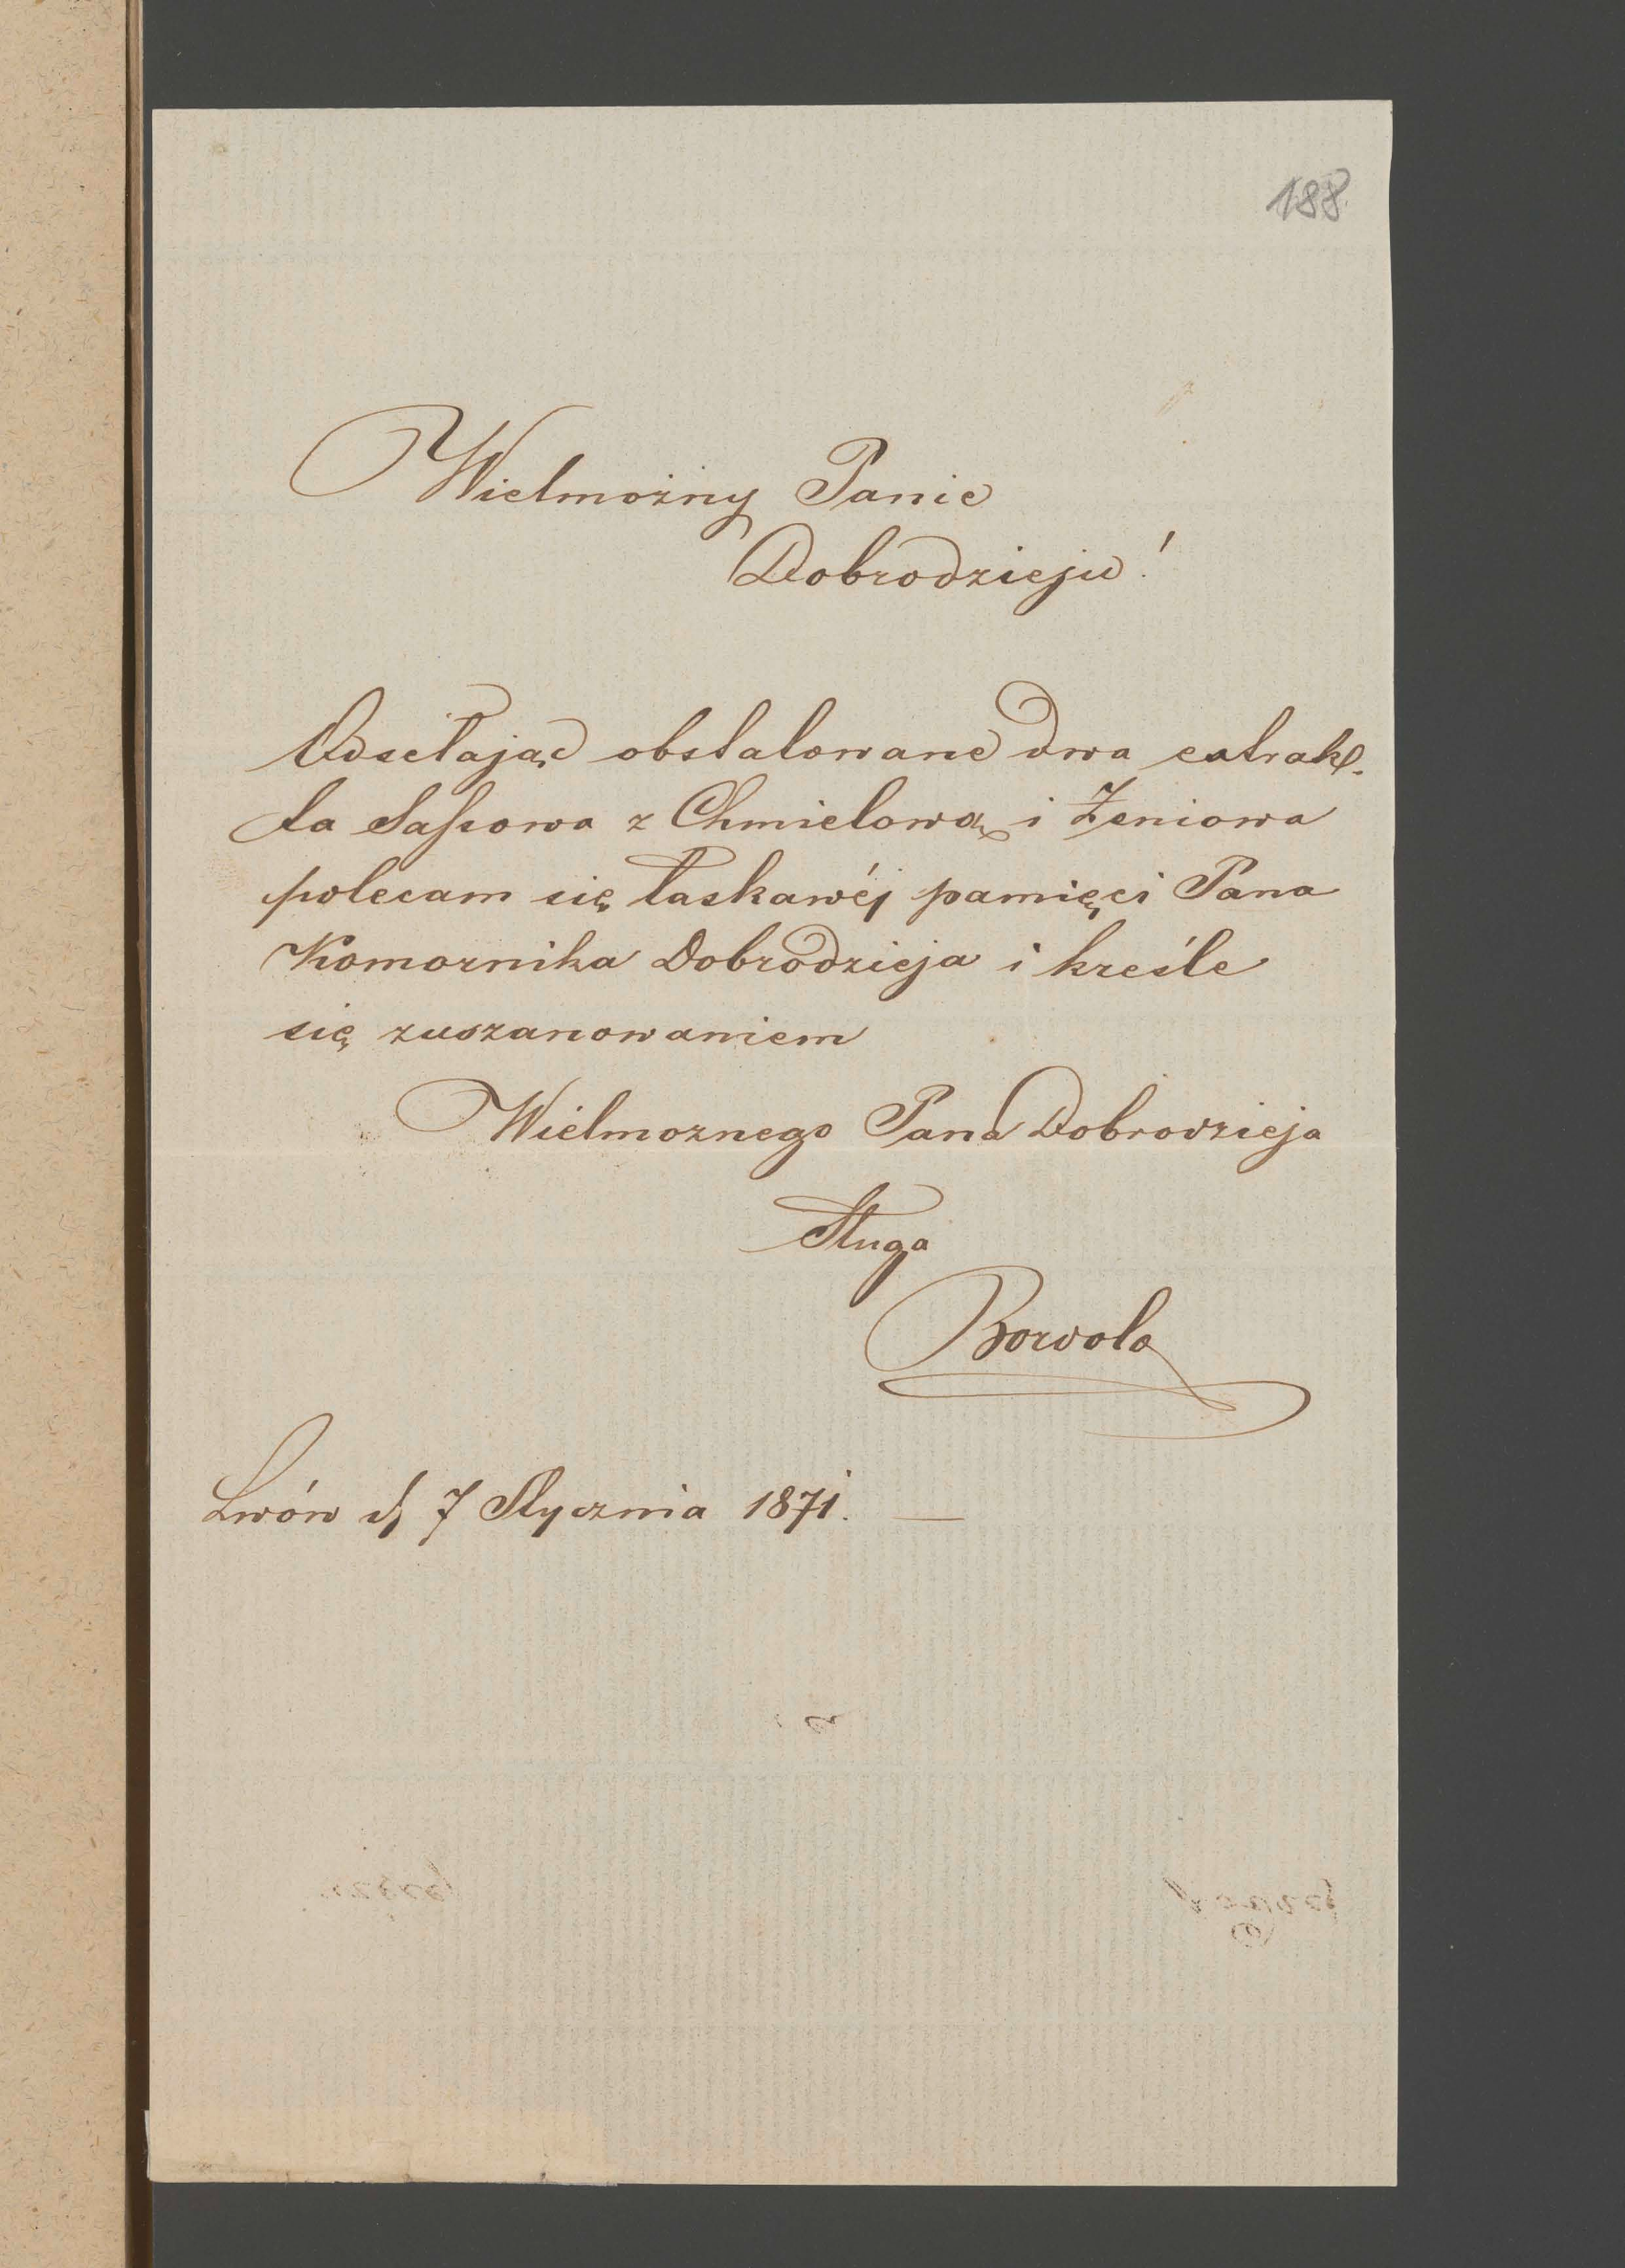 188.
Wielmożny Panie
Dobrodzieju!
Odsełając obstalowane dwa extrak-
ta Sassowa z Chmielową i Żeniowa
polecam się łaskawéj pamięci Pana
Komornika Dobrodzieja i kreśle
się zuszanowaniem
Wielmoznego Pana Dobrodzieja
Sługa
Bordolo
Lwów d, 7 Stycznia 1871. —